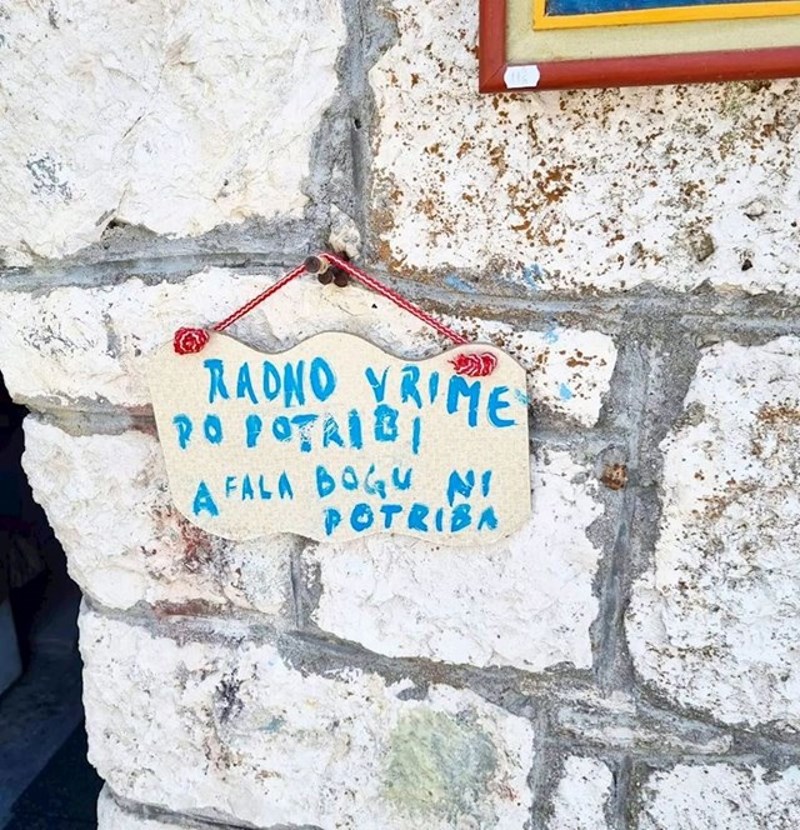 RADNO VRIME
PO POTRIBI
A FALA BOGU NI
POTRIBA